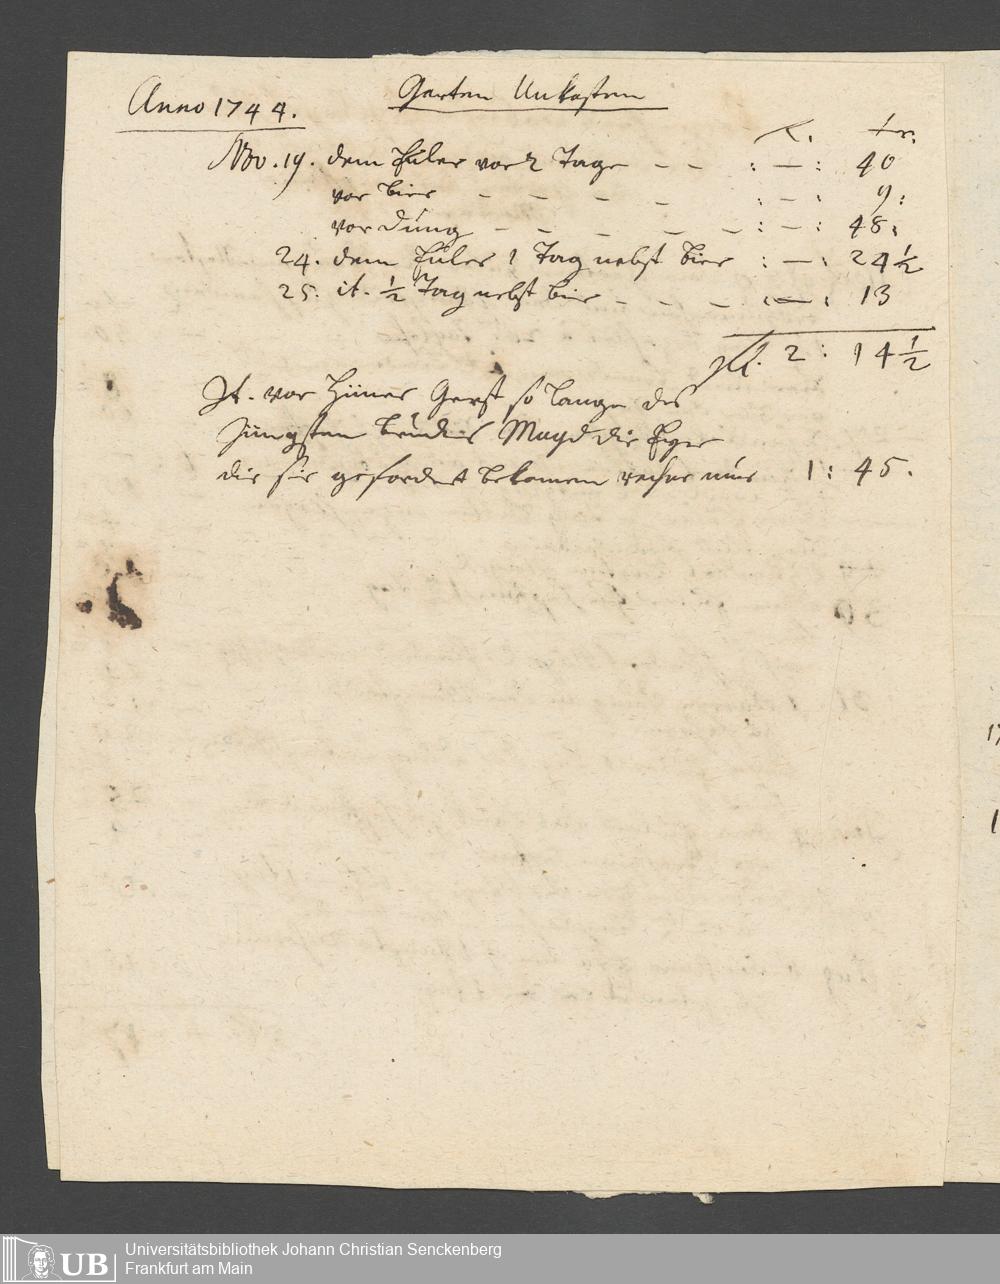 Anno 1744.
Garten Unkosten
f. xr.
Nov. 19. dem Euler vor 2 Tage — — : — : 40
vor bier — — — — — : — : 9 :
vor dung — — — — — — : — : 48 :
24. dem Euler 1 Tag nebst bier : — : 24 ½
25. it. ½ Tag nebst bier — — — : — : 13
fl. 2 : 14 ½
It. vor Hüner Gerst so lange des
jüngsten bruders Magd die Eyer
die sie gefordert bekomen nur 1 : 45.
17
1
UB
Universitätsbibliothek Johann Christian Senckenberg
Frankfurt am Main